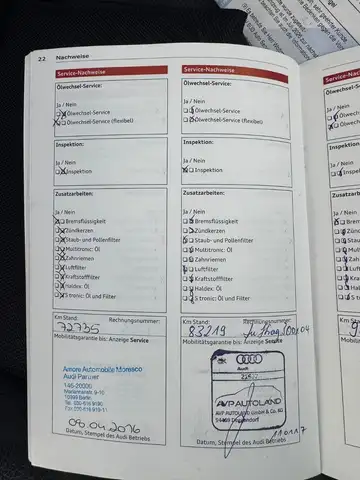 22 Nachweise
Service-Nachweise
Ölwechsel-Service:
Ja / Nein
Ölwechsel-Service
Ölwechsel-Service (flexibel)
Inspektion:
Ja / Nein
Inspektion
Zusatzarbeiten:
Ja / Nein
Bremsflüssigkeit
Zündkerzen
Staub- und Pollenfilter
Multitronic: Öl
Zahnriemen
Luftfilter
Kraftstofffilter
Haldex: Öl
S tronic: Öl und Filter
Km Stand: Rechnungsnummer:
72735
Mobilitätsgarantie bis: Anzeige Service
Amore Automobile Moresco
Audi Partner
08.04.2016
Datum, Stempel des Audi Betriebs
Service-Nachweise
Ölwechsel-Service:
Ja / Nein
Ölwechsel-Service
Ölwechsel-Service (flexibel)
Inspektion:
Ja / Nein
Inspektion
Zusatzarbeiten:
Ja / Nein
Bremsflüssigkeit
Zündkerzen
Staub- und Pollenfilter
Multitronic: Öl
Zahnriemen
Luftfilter
Kraftstofffilter
Haldex: Öl
S tronic: Öl und Filter
Km Stand: Rechnungsnummer:
83219
Mobilitätsgarantie bis: Anzeige Service
Audi
AVP AUTOLAND
AVP AUTOLAND GmbH & Co. KG
94469 Deggendorf
Datum, Stempel des Audi Betriebs